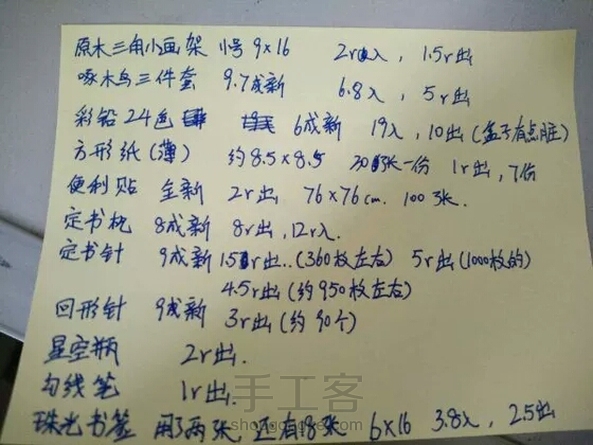 原木三角小画架 小号 9×16 2r入, 1.5r出
啄木鸟三件套 9.7成新 6.8入, 5r出
彩铅24色 6成新 19入, 10出(盒子有点脏)
方形纸(薄) 约8.5×8.5 30张一份 1r出, 7份
便利贴 全新 2r出 76×76cm. 100张.
定书机 8成新 8r出, 12r入.
定书针 9成新 1.5r出..(360枚左右) 5r出(1000枚的)
4.5r出(约950枚左右)
回形针 9成新 3r出(约90个)
星空瓶 2r出.
勾线笔 1r出.
珠光书签 用了两张 还有18张 6×16 3.8入, 2.5出
手工客